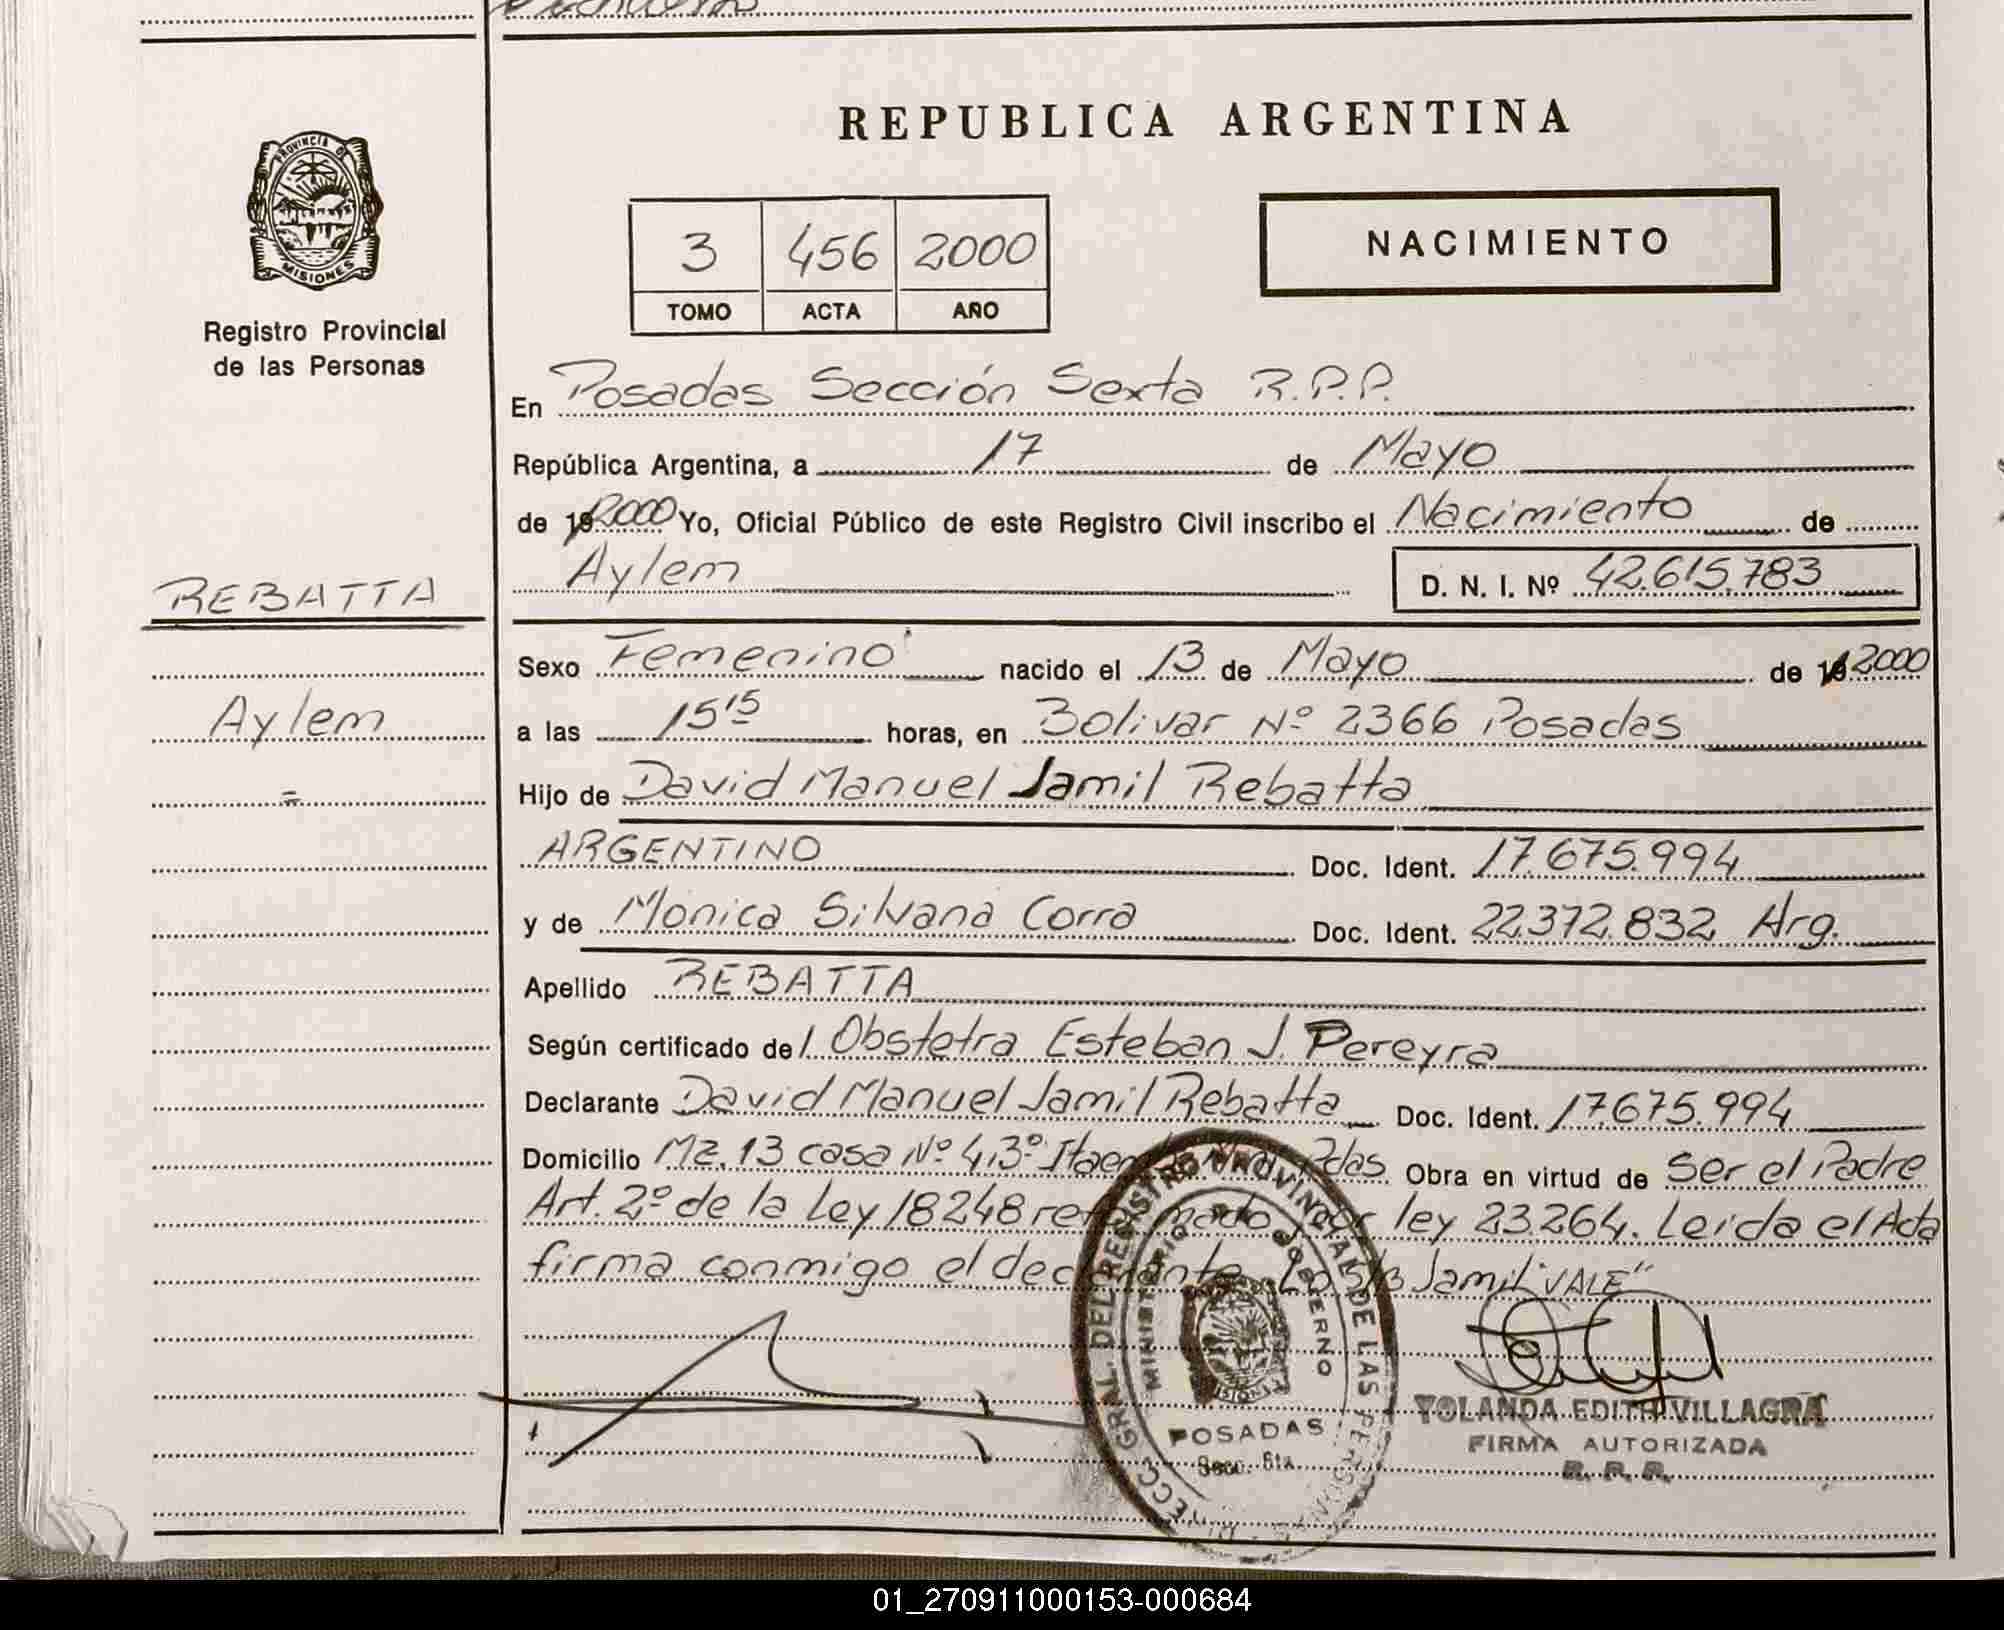 REPUBLICA ARGENTINA
PROVINCIA DE
MISIONES
Registro Provincial
de las Personas
3 456 2000
TOMO ACTA AÑO
NACIMIENTO
En Posadas Sección Sexta R.P.P.
República Argentina, a 17 de Mayo
de 19 2000 Yo, Oficial Público de este Registro Civil inscribo el Nacimiento de
Aylem D. N. I. Nº 42.615.783
REBATTA
Aylem
=
Sexo Femenino nacido el 13 de Mayo de 19 2000
a las 15 15 horas, en Bolivar Nº 2366 Posadas
Hijo de David Manuel Jamil Rebatta
ARGENTINO Doc. Ident. 17.675.994
y de Monica Silvana Corra Doc. Ident. 22.372.832 Arg.
Apellido REBATTA
Según certificado del Obstetra Esteban J. Pereyra
Declarante David Manuel Jamil Rebatta Doc. Ident. 17.675.994
Domicilio Mz. 13 casa Nº Pdas. Obra en virtud de ser el Padre
Art. 2º de la Ley 18248 reformado por ley 23.264. Leida el Acta
firma conmigo el declarante. Jamil "VALE"
DIRECC. GRAL. DEL REGISTRO PROVINCIAL DE LAS PERSONAS
MINISTERIO DE GOBIERNO
MISIONES
POSADAS
Secc. 6ta.
YOLANDA EDITH VILLAGRA
FIRMA AUTORIZADA
R. P. P.
01_270911000153-000684